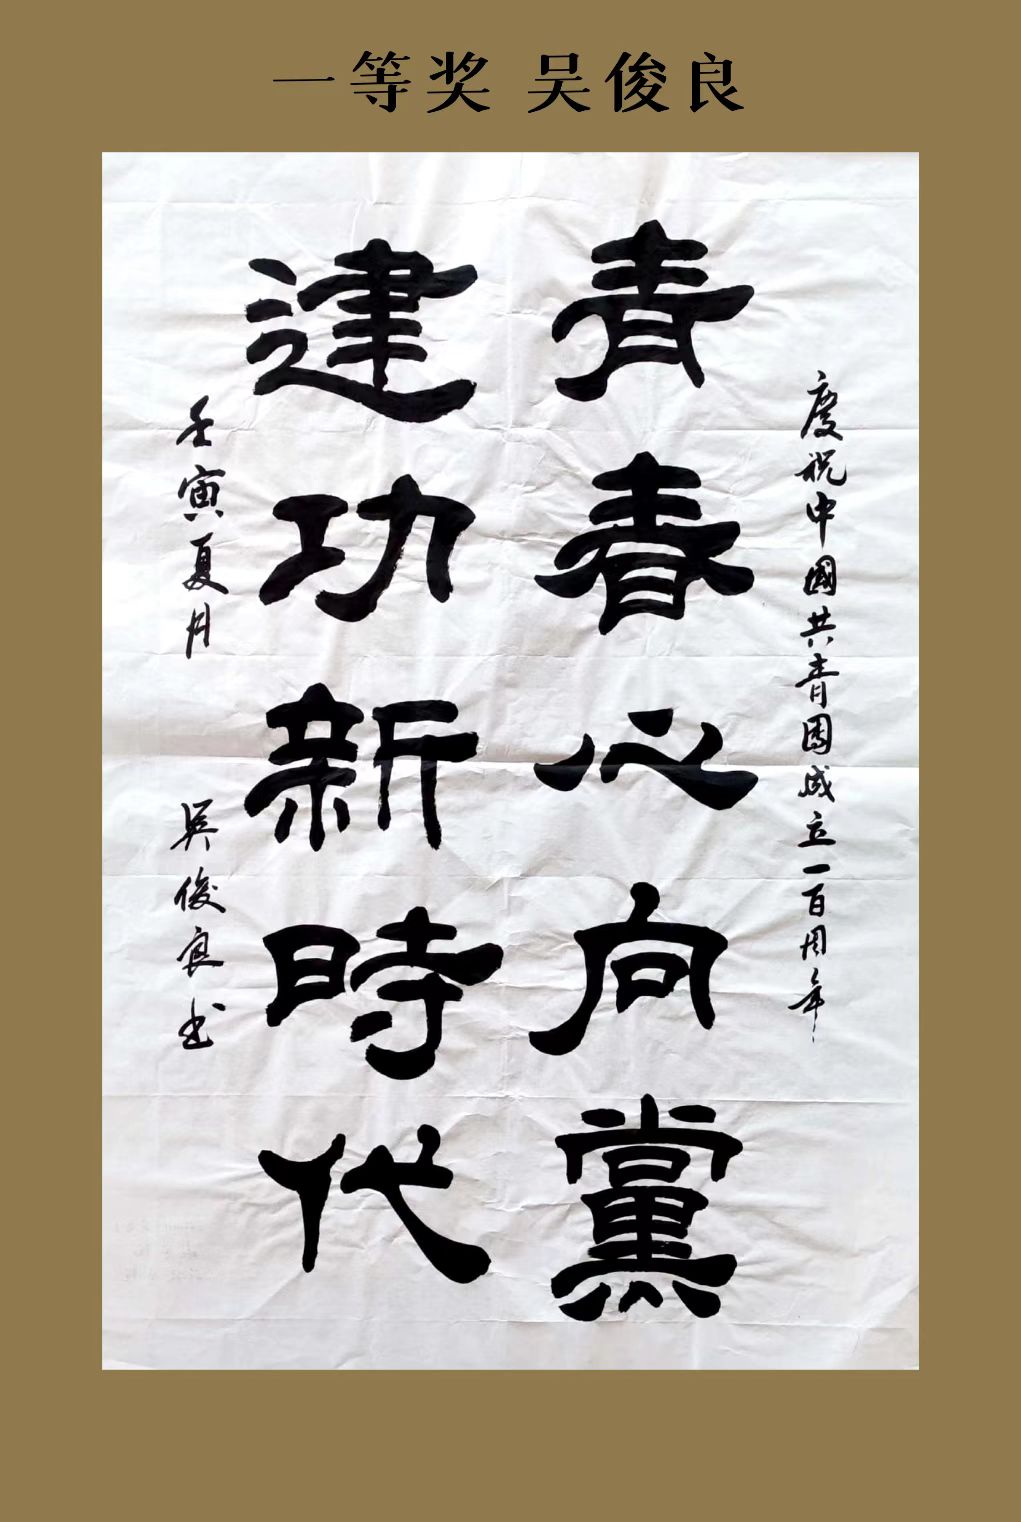 一等奖 吴俊良
慶祝中國共青團成立一百周年
青春心向黨
建功新時代
壬寅夏月 吳俊良书